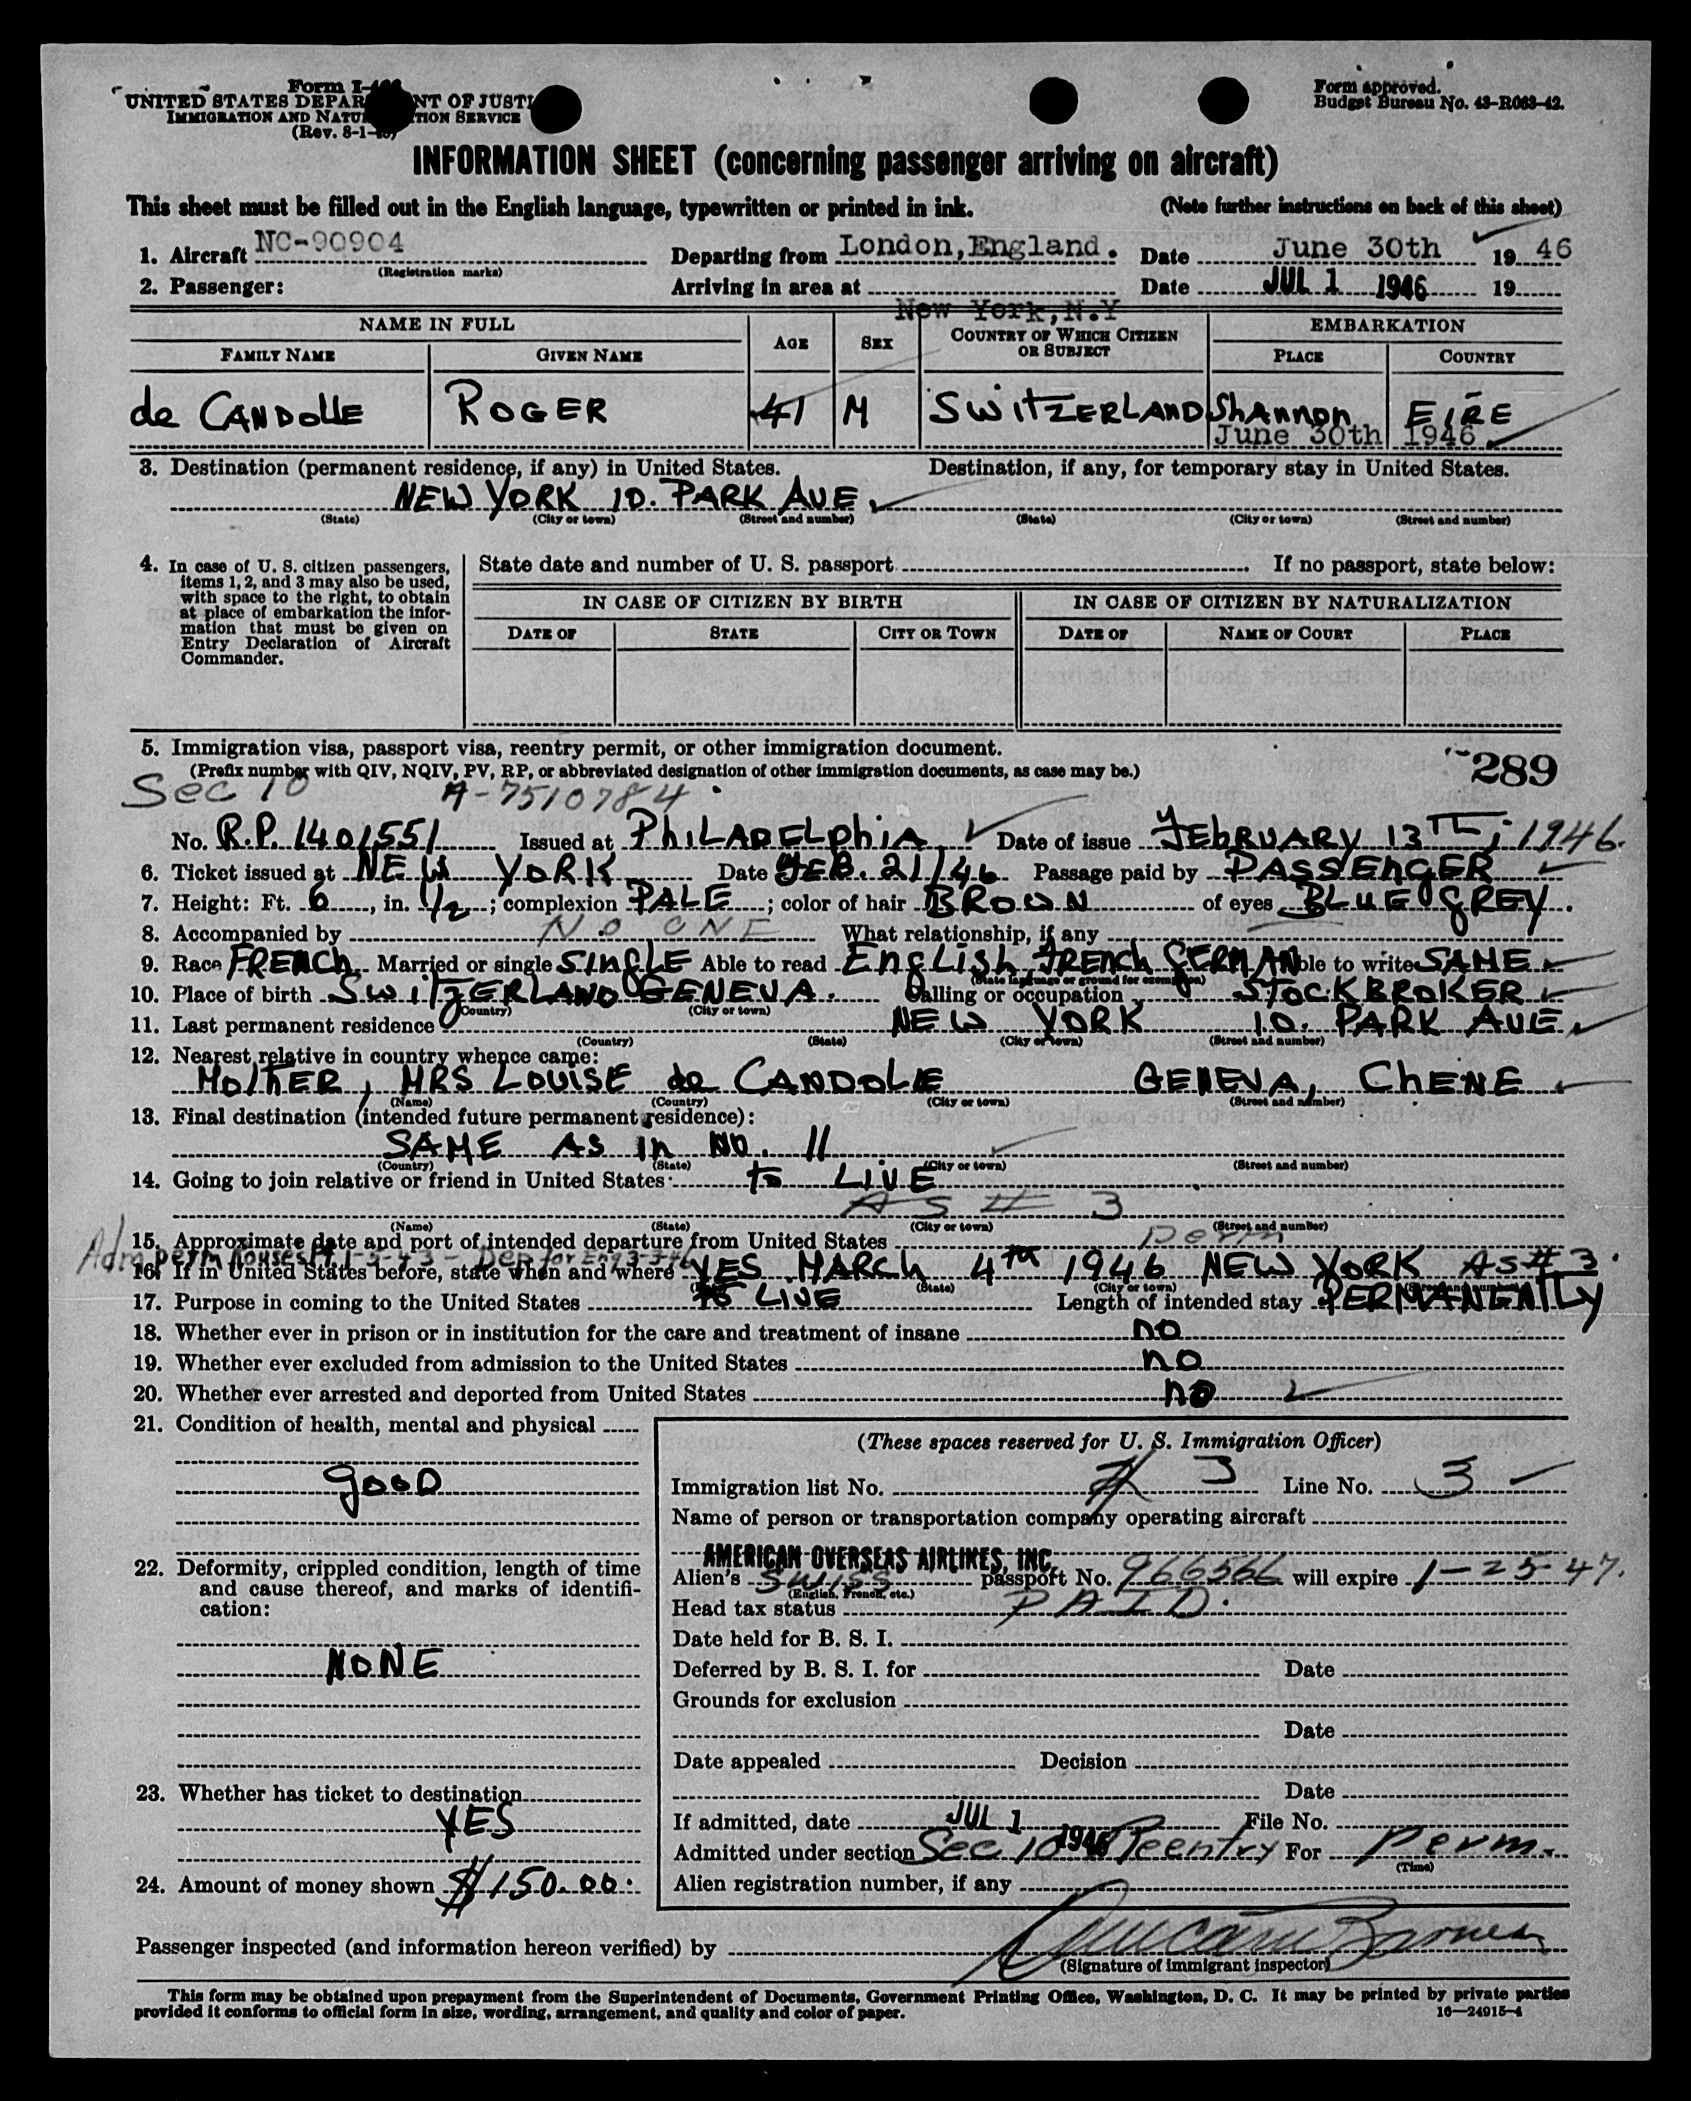 Form I-
UNITED STATES DEPAR NT OF JUSTI
IMMIGRATION AND NATU TION SERVICE
(Rev. 8-1-
Form approved.
Budget Bureau No. 43-R063-42.
INFORMATION SHEET (concerning passenger arriving on aircraft)
This sheet must be filled out in the English language, typewritten or printed in ink. (Note further instructions on back of this sheet)
1. Aircraft NC-90904 Departing from London, England. Date June 30th 19 46
(Registration marks)
2. Passenger: Arriving in area at New York, N.Y Date JUL 1 1946 19
NAME IN FULL AGE SEX COUNTRY OF WHICH CITIZEN OR SUBJECT EMBARKATION
FAMILY NAME GIVEN NAME PLACE COUNTRY
de CANDOLLE ROGER 41 M SWITZERLAND SHANNON EIRE
June 30th 1946
3. Destination (permanent residence, if any) in United States. Destination, if any, for temporary stay in United States.
NEW YORK 10. PARK AVE
(State) (City or town) (Street and number) (State) (City or town) (Street and number)
4. In case of U. S. citizen passengers, items 1, 2, and 3 may also be used, with space to the right, to obtain at place of embarkation the information that must be given on Entry Declaration of Aircraft Commander.
State date and number of U. S. passport If no passport, state below:
IN CASE OF CITIZEN BY BIRTH IN CASE OF CITIZEN BY NATURALIZATION
DATE OF STATE CITY OR TOWN DATE OF NAME OF COURT PLACE
5. Immigration visa, passport visa, reentry permit, or other immigration document.
289
(Prefix number with QIV, NQIV, PV, RP, or abbreviated designation of other immigration documents, as case may be.)
Sec 10 A-7510784
No. R.P. 1401551 Issued at PHILADELPHIA Date of issue FEBRUARY 13TH, 1946.
6. Ticket issued at NEW YORK Date FEB. 21/46 Passage paid by PASSENGER
7. Height: Ft. 6, in. 1/2; complexion PALE; color of hair BROWN of eyes BLUE GREY.
8. Accompanied by NO ONE What relationship, if any
9. Race FRENCH Married or single SINGLE Able to read ENGLISH, FRENCH GERMAN Able to write SAME
(State language or ground for exemption)
10. Place of birth SWITZERLAND GENEVA. Calling or occupation STOCKBROKER
(Country) (City or town)
11. Last permanent residence NEW YORK 10. PARK AVE
(Country) (State) (City or town) (Street and number)
12. Nearest relative in country whence came:
MOTHER, MRS LOUISE de CANDOLLE GENEVA, CHENE
(Name) (Country) (City or town) (Street and number)
13. Final destination (intended future permanent residence):
SAME AS IN NO. 11
(Country) (State) (City or town) (Street and number)
14. Going to join relative or friend in United States: TO LIVE
AS # 3
(Name) (State) (City or town) (Street and number)
15. Approximate date and port of intended departure from United States Perm
Adm perm Rouses Pt 1-5-43 - Dep for Eng 3-3-46
16. If in United States before, state when and where YES MARCH 4TH 1946 NEW YORK AS # 3.
(State) (City or town)
17. Purpose in coming to the United States TO LIVE Length of intended stay PERMANENTLY
18. Whether ever in prison or in institution for the care and treatment of insane NO
19. Whether ever excluded from admission to the United States NO
20. Whether ever arrested and deported from United States NO
21. Condition of health, mental and physical
GOOD
22. Deformity, crippled condition, length of time and cause thereof, and marks of identification:
NONE
23. Whether has ticket to destination
YES
24. Amount of money shown $150.00.
(These spaces reserved for U. S. Immigration Officer)
Immigration list No. # 3 Line No. 3
Name of person or transportation company operating aircraft
AMERICAN OVERSEAS AIRLINES, INC.
Alien's SWISS passport No. 966566 will expire 1-25-47.
(English, French, etc.)
Head tax status PAID.
Date held for B. S. I.
Deferred by B. S. I. for Date
Grounds for exclusion
Date
Date appealed Decision
Date
If admitted, date JUL 1 1946 File No.
Admitted under section Sec 10 Reentry For Perm.
(Time)
Alien registration number, if any
Passenger inspected (and information hereon verified) by
(Signature of immigrant inspector)
This form may be obtained upon prepayment from the Superintendent of Documents, Government Printing Office, Washington, D. C. It may be printed by private parties
provided it conforms to official form in size, wording, arrangement, and quality and color of paper. 16—24915-4